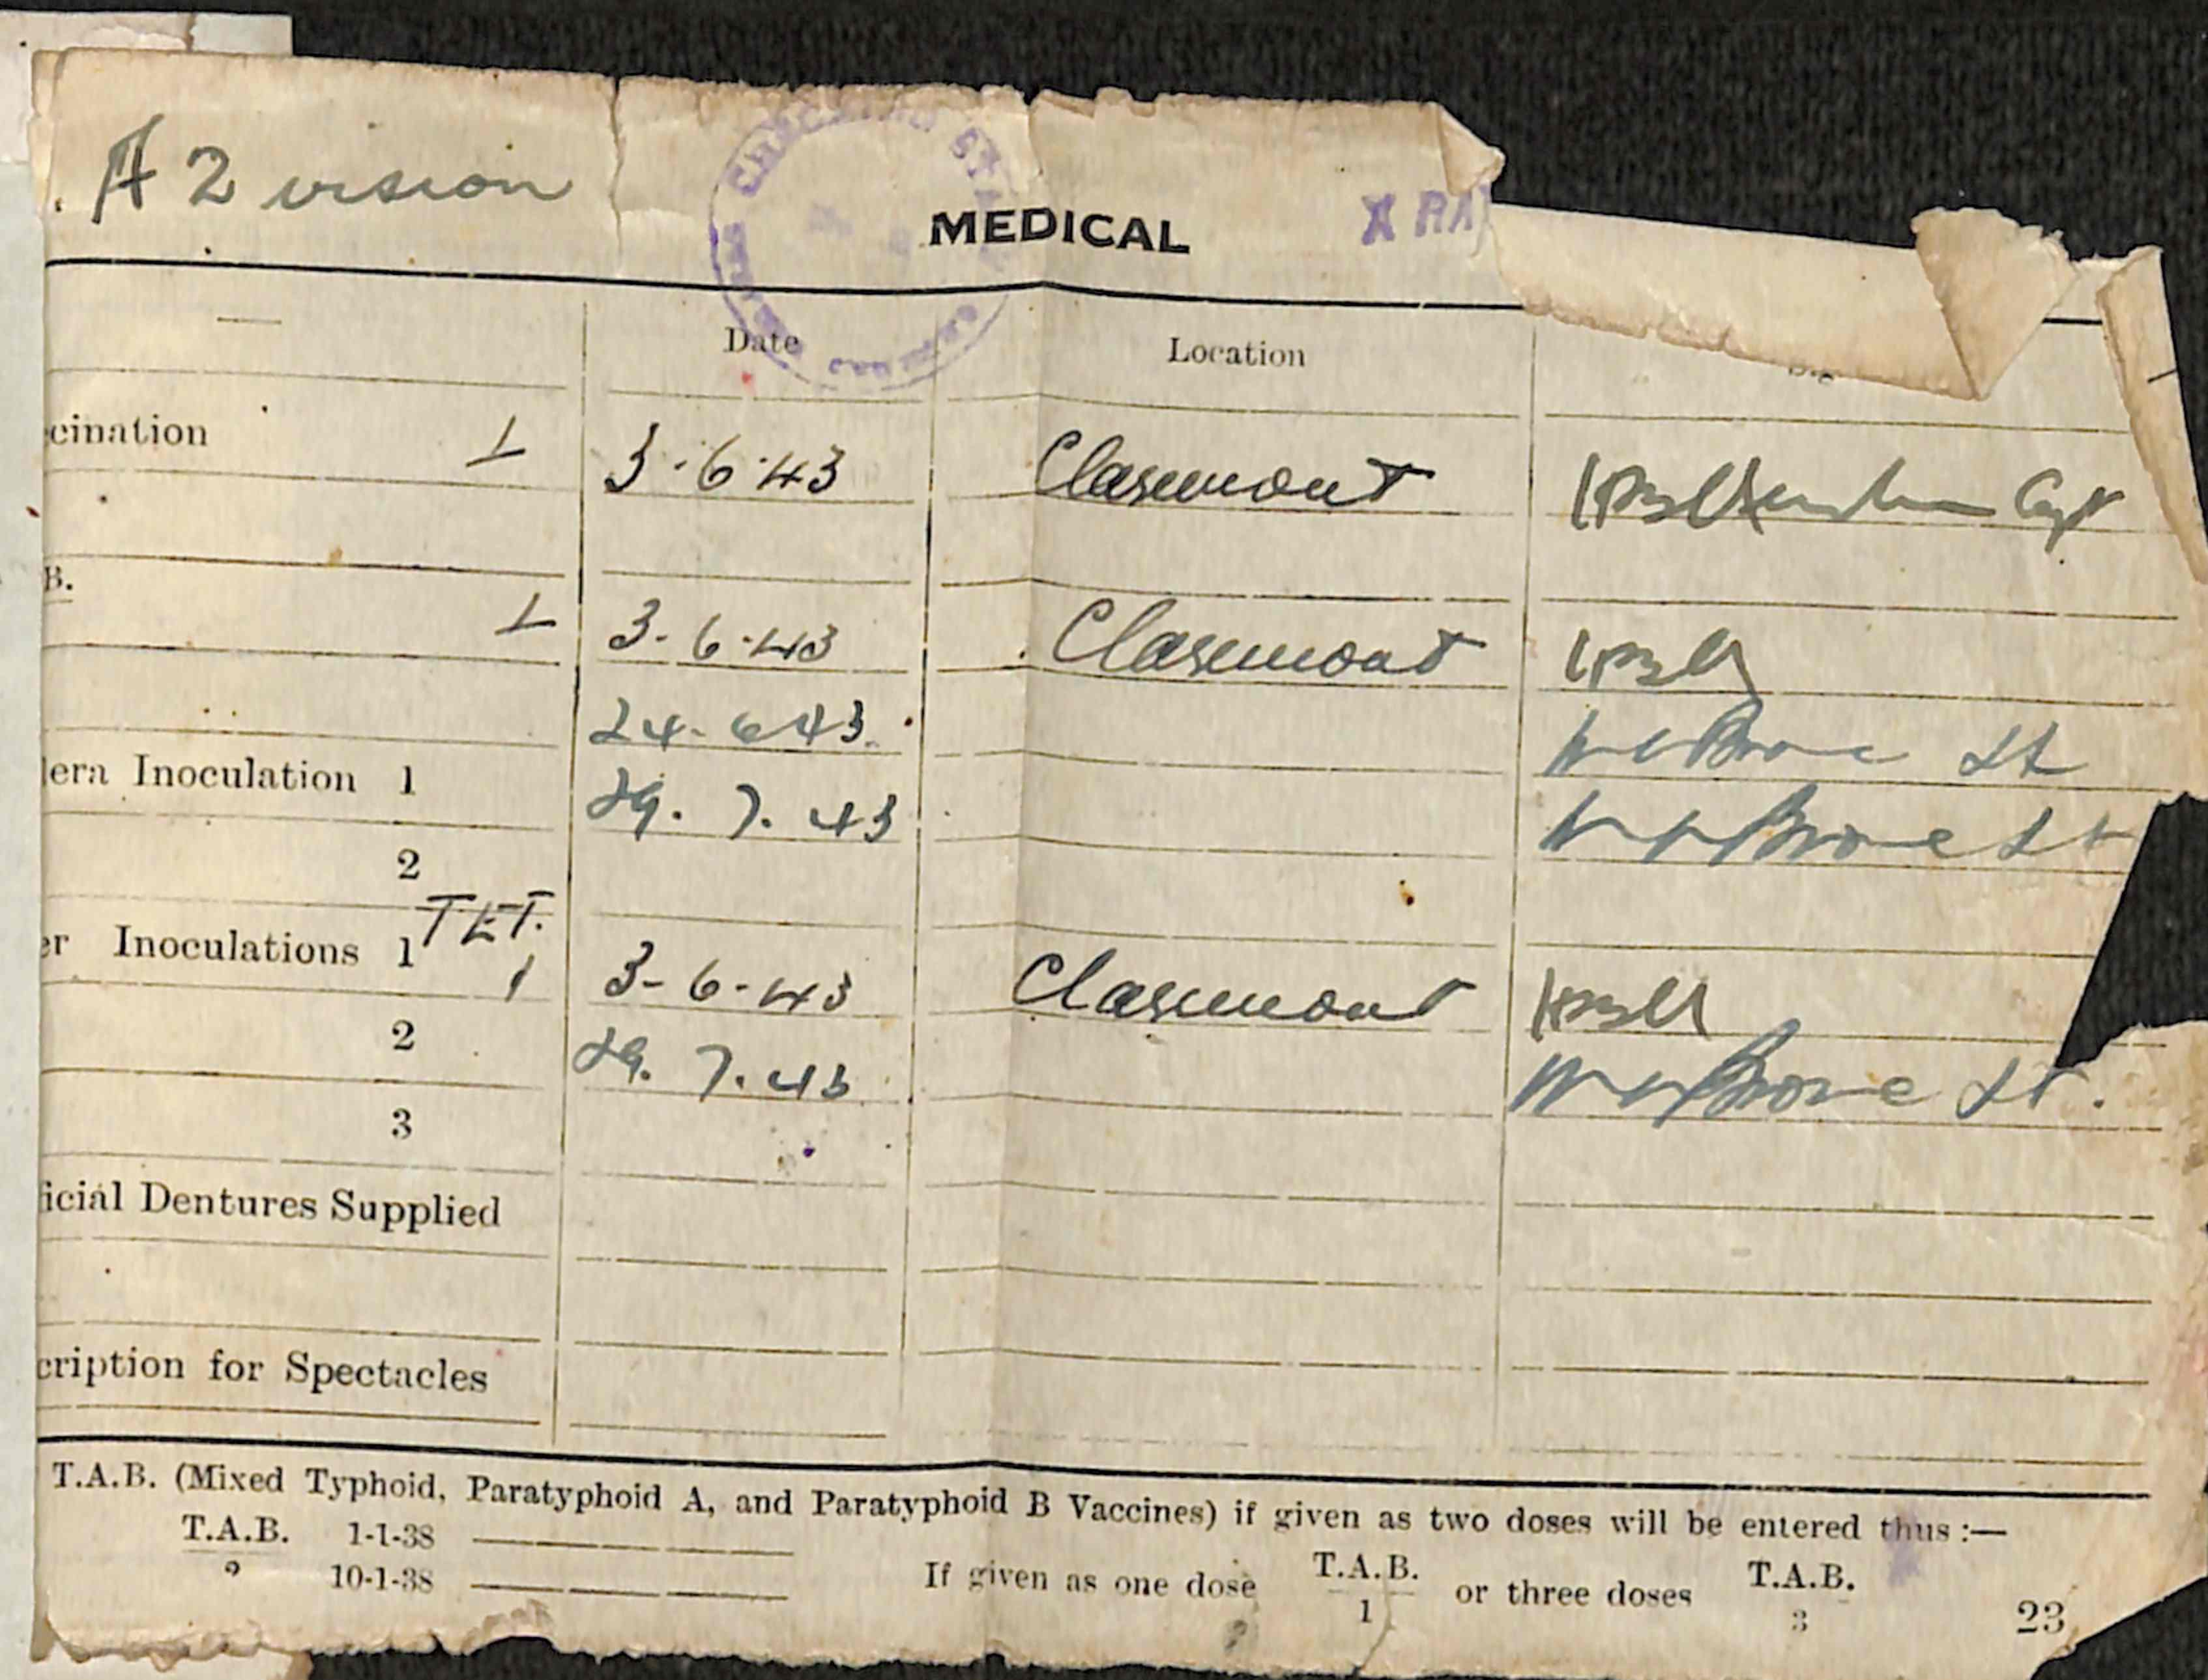 A 2 vision
MEDICAL X RA
Date Location
cination 1 3-6-43 Claremont Capt
B.
1 3-6-43 Claremont
24-6-43. Lt
lera Inoculation 1 29. 7. 43 Lt
2
TET.
er Inoculations 1 1 3-6-43 Claremont
2 29. 7. 43 Lt.
3
ficial Dentures Supplied
cription for Spectacles
T.A.B. (Mixed Typhoid, Paratyphoid A, and Paratyphoid B Vaccines) if given as two doses will be entered thus :—
T.A.B. 1-1-38
2 10-1-38 If given as one dose T.A.B. or three doses T.A.B.
1 3
23